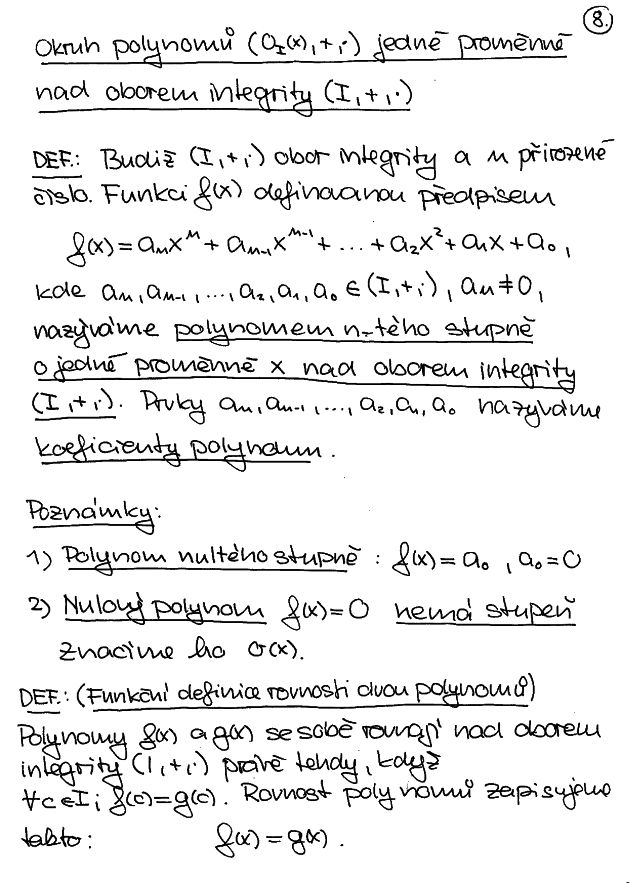 8.
Okruh polynomů (O_I(x),+,·) jedné proměnné
nad oborem integrity (I,+,·)
DEF.: Budiž (I,+,·) obor integrity a n přirozené
číslo. Funkci f(x) definovanou předpisem
f(x)=aₙxⁿ + aₙ₋₁xⁿ⁻¹ + ... + a₂x² + a₁x + a₀,
kde aₙ, aₙ₋₁, ..., a₂, a₁, a₀ ∈ (I,+,·), aₙ ≠ 0,
nazýváme polynomem n-tého stupně
o jedné proměnné x nad oborem integrity
(I,+,·). Prvky aₙ, aₙ₋₁, ..., a₂, a₁, a₀ nazýváme
koeficienty polynomu.
Poznámky:
1) Polynom nultého stupně: f(x)=a₀, a₀=0
2) Nulový polynom f(x)=0 nemá stupeň
značíme ho σ(x).
DEF.: (Funkční definice rovnosti dvou polynomů)
Polynomy f(x) a g(x) se sobě rovnají nad oborem
integrity (I,+,·) právě tehdy, když
∀c∈I; f(c)=g(c). Rovnost polynomů zapisujeme
takto: f(x)=g(x).